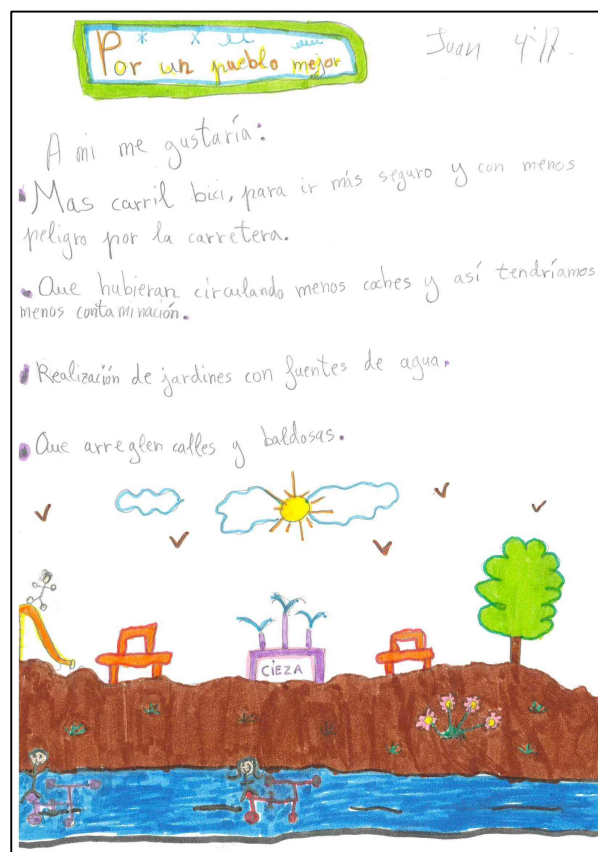 Por un pueblo mejor
Juan 4ºA.
A mi me gustaría:
Mas carril bici, para ir más seguro y con menos
peligro por la carretera.
Que hubieran circulando menos coches y así tendríamos
menos contaminación.
Realización de jardines con fuentes de agua.
Que arreglen calles y baldosas.
CIEZA